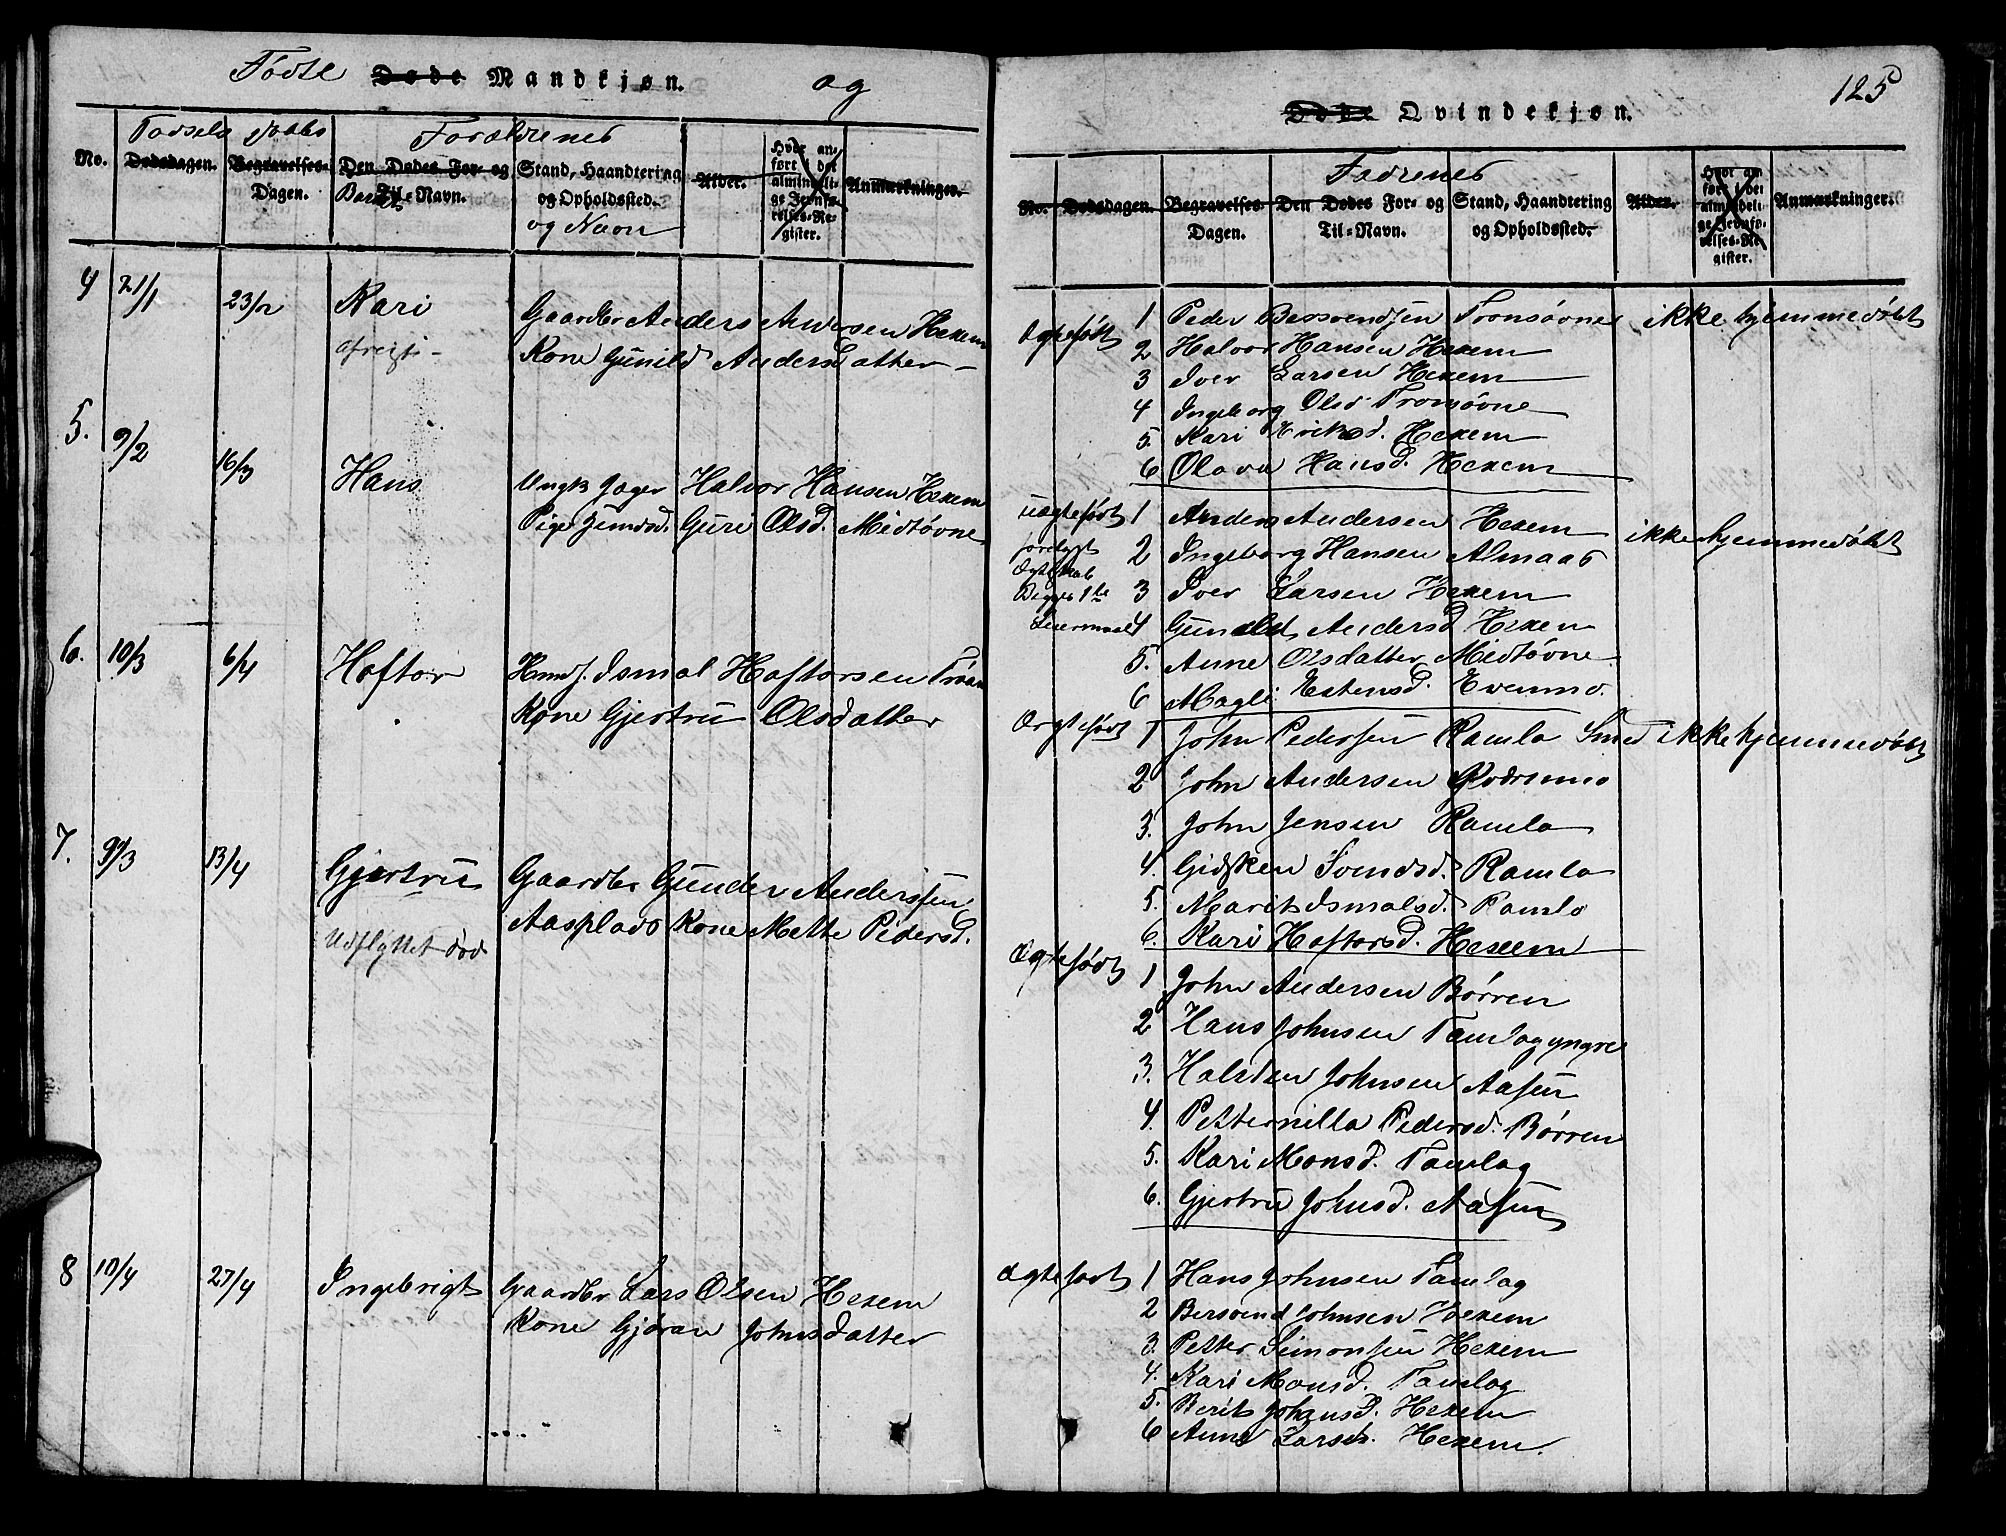 Fødte Døde Mandkjøn. og
Fødsels Daabs Forældrenes
No. Dødsdagen. Begravelses-Dagen. Den Dødes For- og Til-Navn. Barnets Stand, Haandtering og Opholdssted. og Navn Alder. Hvor anført i det almindelige Jevnførelses-Register. Anmærkninger.
4 21/1 23/2 Kari Gaardbr Anders Andersen Hexem
afreist - Kone Gunild Andersdatter -
5. 9/2 16/3 Hans Ungk Joger Halvor Hansen Hexem
Pige Guri Olsd. Midtøvne
6. 10/3 6/4 Haftor Huusf. Ismal Haftorsen
Kone Gjertru Olsdatter
7. 9/3 13/4 Gjertru Gaardbr Gunder Andersen
Aasplads Kone Mette Pedersd.
Udflyttet død
8 10/4 27/4 Ingebrigt Gaardbr Lars Olsen Hexem
Kone Gjøran Johnsdatter
125
Døde Qvindekjøn.
Fadrenes
No. Dødsdagen. Begravelses-Dagen. Den Dødes For- og Til-Navn. Stand, Haandtering og Opholdssted. Alder. Hvor anført i det almindelige Jevnførelses-Register. Anmærkninger.
Ægtefødt 1 Peder Bersvendsen Tronsøvne ikke hjemmedøbt
2 Halvor Hansen Hexem
3 Iver Larsen Hexem
4 Ingeborg Olsd Tronsøvne
5. Kari Eriksd. Hexem
6 Olava Hansd. Hexem
uægtefødt 1 Anders Andersen Hexem ikke hjemmedøbt
2 Ingeborg Hansen Almaas
Ægteskab
Begges 1te 3 Iver Larsen Hexem
Leiermaal 4 Gunild Andersd Hexem
5. Anne Olsdatter Midtøvne
6 Magli Estensd. Evenmo.
Ægtefødt 1 John Pedersen Ramlo Smed ikke hjemmedøbt
2 John Andersen
3. John Jensen Ramlo
4. Gidsken Svendsd. Ramlo
5. Marit Ismalsd. Ramlo
6. Kari Haftorsd. Hexem
Ægtefødt 1 John Andersen Børren
2 Hans Johnsen Tamlag yngre
3. Halsten Johnsen Aasen
4. Petternilla Pedersd. Børren
5. Kari Monsd. Tamlag
6. Gjertru Johnsd. Aasen
Ægtefødt 1 Hans Johnsen Tamlag
2 Bersvend Johnsen Hexem
3. Petter Simonsen Hexem
4. Kari Monsd. Tamlag
5. Berit Johansd. Hexem
6 Anne Larsd. Hexem.